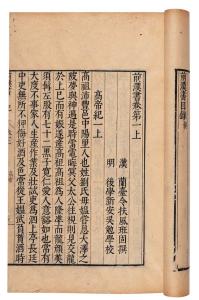 前漢書目錄
前漢書卷第一上
漢 蘭臺令史扶風班固撰
明 後學新安吳勉學校
高帝紀上
高祖沛豐邑中陽里人也姓劉氏母媼嘗息大澤之
陂夢與神遇是時雷電晦冥父太公往視則見交龍
於上已而有娠遂產高祖高祖爲人隆準而龍顏美
須髯左股有七十二黑子寬仁愛人意豁如也常有
大度不事家人生產作業及壯試吏爲泗上亭長廷
中吏無所不狎侮好酒及色常從王媼武負貰酒時